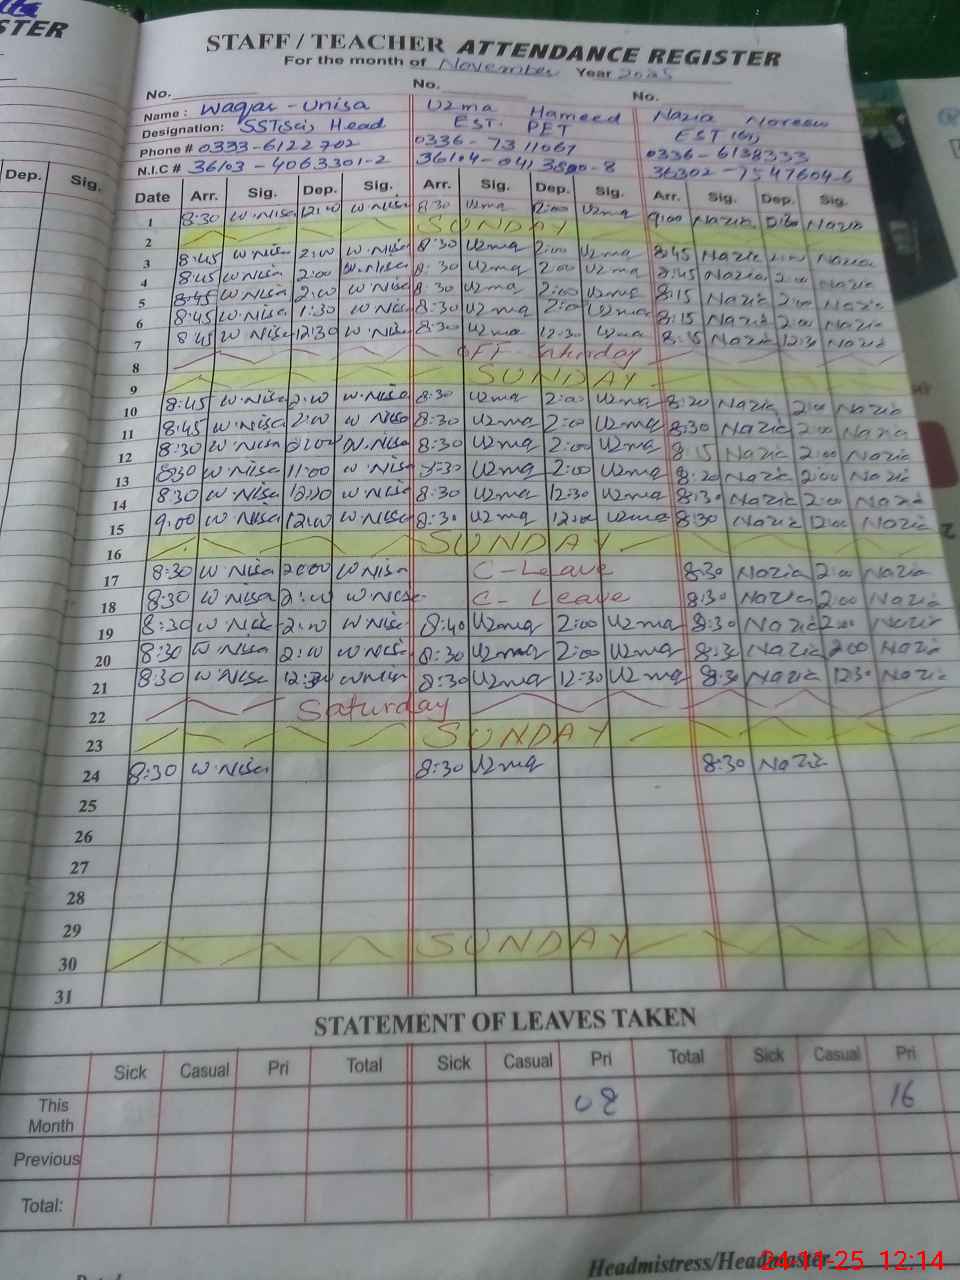 STER
STAFF / TEACHER ATTENDANCE REGISTER
For the month of November Year 2025
No. No. No.
Name: Waqar-Unisa Uzma Hameed Nazia Noreen
Designation: SSTSci, Head EST. PET EST
Phone # 0333-6122702 0336-7311067 0336-6138333
N.I.C # 36103-4063301-2 36104- 36302-7547604-6
Dep. Sig.
Date Arr. Sig. Dep. Sig. Arr. Sig. Dep. Sig. Arr. Sig. Dep. Sig.
1 8:30 W.Nisa 12:00 W.Nisa 8:30 Uzma Uzma 9:00 Nazia Nazia
2 SUNDAY
3 8:45 W.Nisa 2:00 W.Nisa 8:30 Uzma 2:00 Uzma 8:45 Nazia 2:00 Nazia
4 8:45 W.Nisa 2:00 W.Nisa 8:30 Uzma 2:00 Uzma 8:45 Nazia 2:00 Nazia
5 8:45 W.Nisa 2:00 W.Nisa 8:30 Uzma 2:00 Uzma 8:15 Nazia 2:00 Nazia
6 8:45 W.Nisa 1:30 W.Nisa 8:30 Uzma 2:00 Uzma 8:15 Nazia 2:00 Nazia
7 8:45 W.Nisa 12:30 W.Nisa 8:30 Uzma 12:30 Uzma 8:15 Nazia 12:30 Nazia
8 OFF
9 SUNDAY
10 8:45 W.Nisa 2:00 W.Nisa 8:30 Uzma 2:00 Uzma 8:20 Nazia 2:00 Nazia
11 8:45 W.Nisa 2:00 W.Nisa 8:30 Uzma 2:00 Uzma 8:30 Nazia 2:00 Nazia
12 8:30 W.Nisa W.Nisa 8:30 Uzma 2:00 Uzma 8:15 Nazia 2:00 Nazia
13 8:30 W.Nisa 11:00 W.Nisa 8:30 Uzma 2:00 Uzma 8:20 Nazia 2:00 Nazia
14 8:30 W.Nisa W.Nisa 8:30 Uzma 12:30 Uzma 8:30 Nazia 2:00 Nazia
15 9:00 W.Nisa 12:00 W.Nisa 8:30 Uzma 12:00 Uzma 8:30 Nazia 12:00 Nazia
16 SUNDAY
17 8:30 W.Nisa W.Nisa C-Leave 8:30 Nazia 2:00 Nazia
18 8:30 W.Nisa 2:00 W.Nisa C-Leave 8:30 Nazia 2:00 Nazia
19 8:30 W.Nisa 2:00 W.Nisa 8:40 Uzma 2:00 Uzma 8:30 Nazia 2:00 Nazia
20 8:30 W.Nisa 2:00 W.Nisa 8:30 Uzma 2:00 Uzma 8:30 Nazia 2:00 Nazia
21 8:30 W.Nisa 12:30 8:30 Uzma 12:30 Uzma 8:30 Nazia 12:30 Nazia
22 Saturday
23 SUNDAY
24 8:30 W.Nisa 8:30 Uzma 8:30 Nazia
25
26
27
28
29
30 SUNDAY
31
STATEMENT OF LEAVES TAKEN
Sick Casual Pri Total Sick Casual Pri Total Sick Casual Pri
This Month 08 16
Previous
Total:
Headmistress/Headmaster
24-11-25 12:14